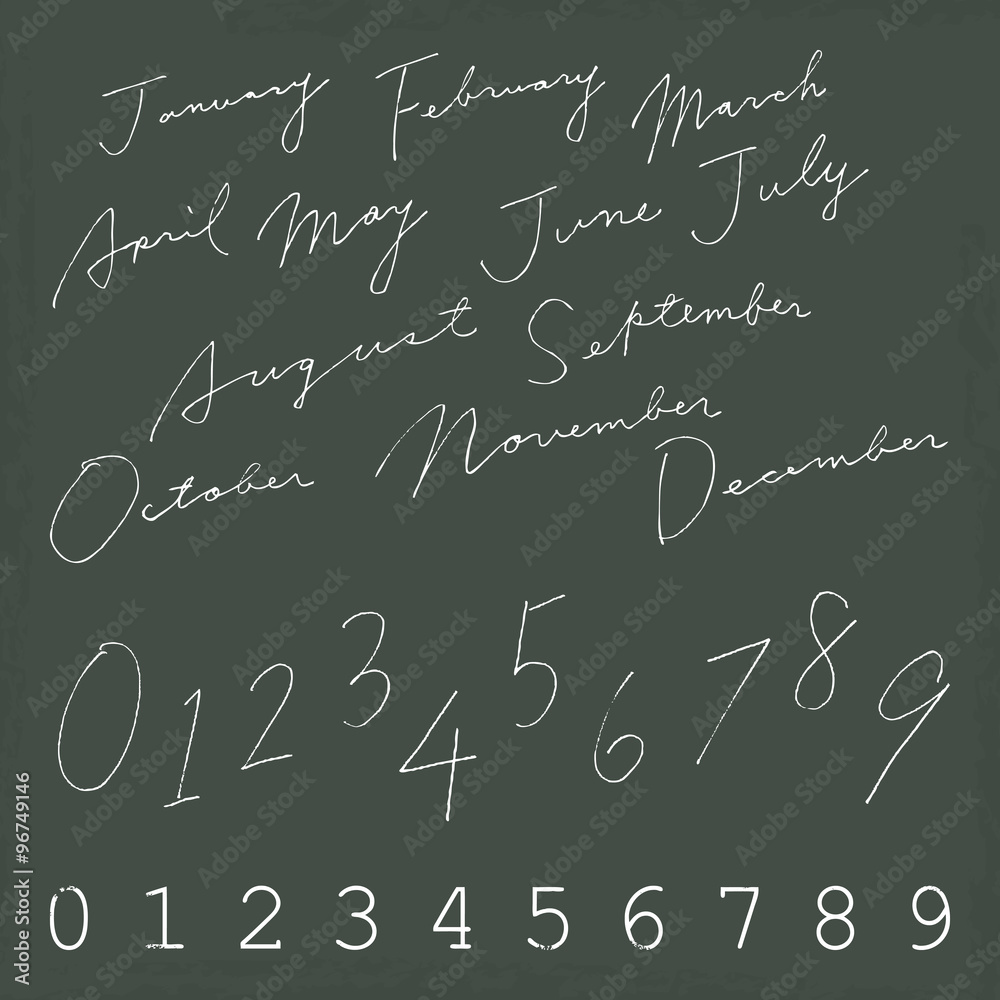 January February March
April May June July
August September
October November December
0 1 2 3 4 5 6 7 8 9
0 1 2 3 4 5 6 7 8 9
Adobe Stock | #96749146